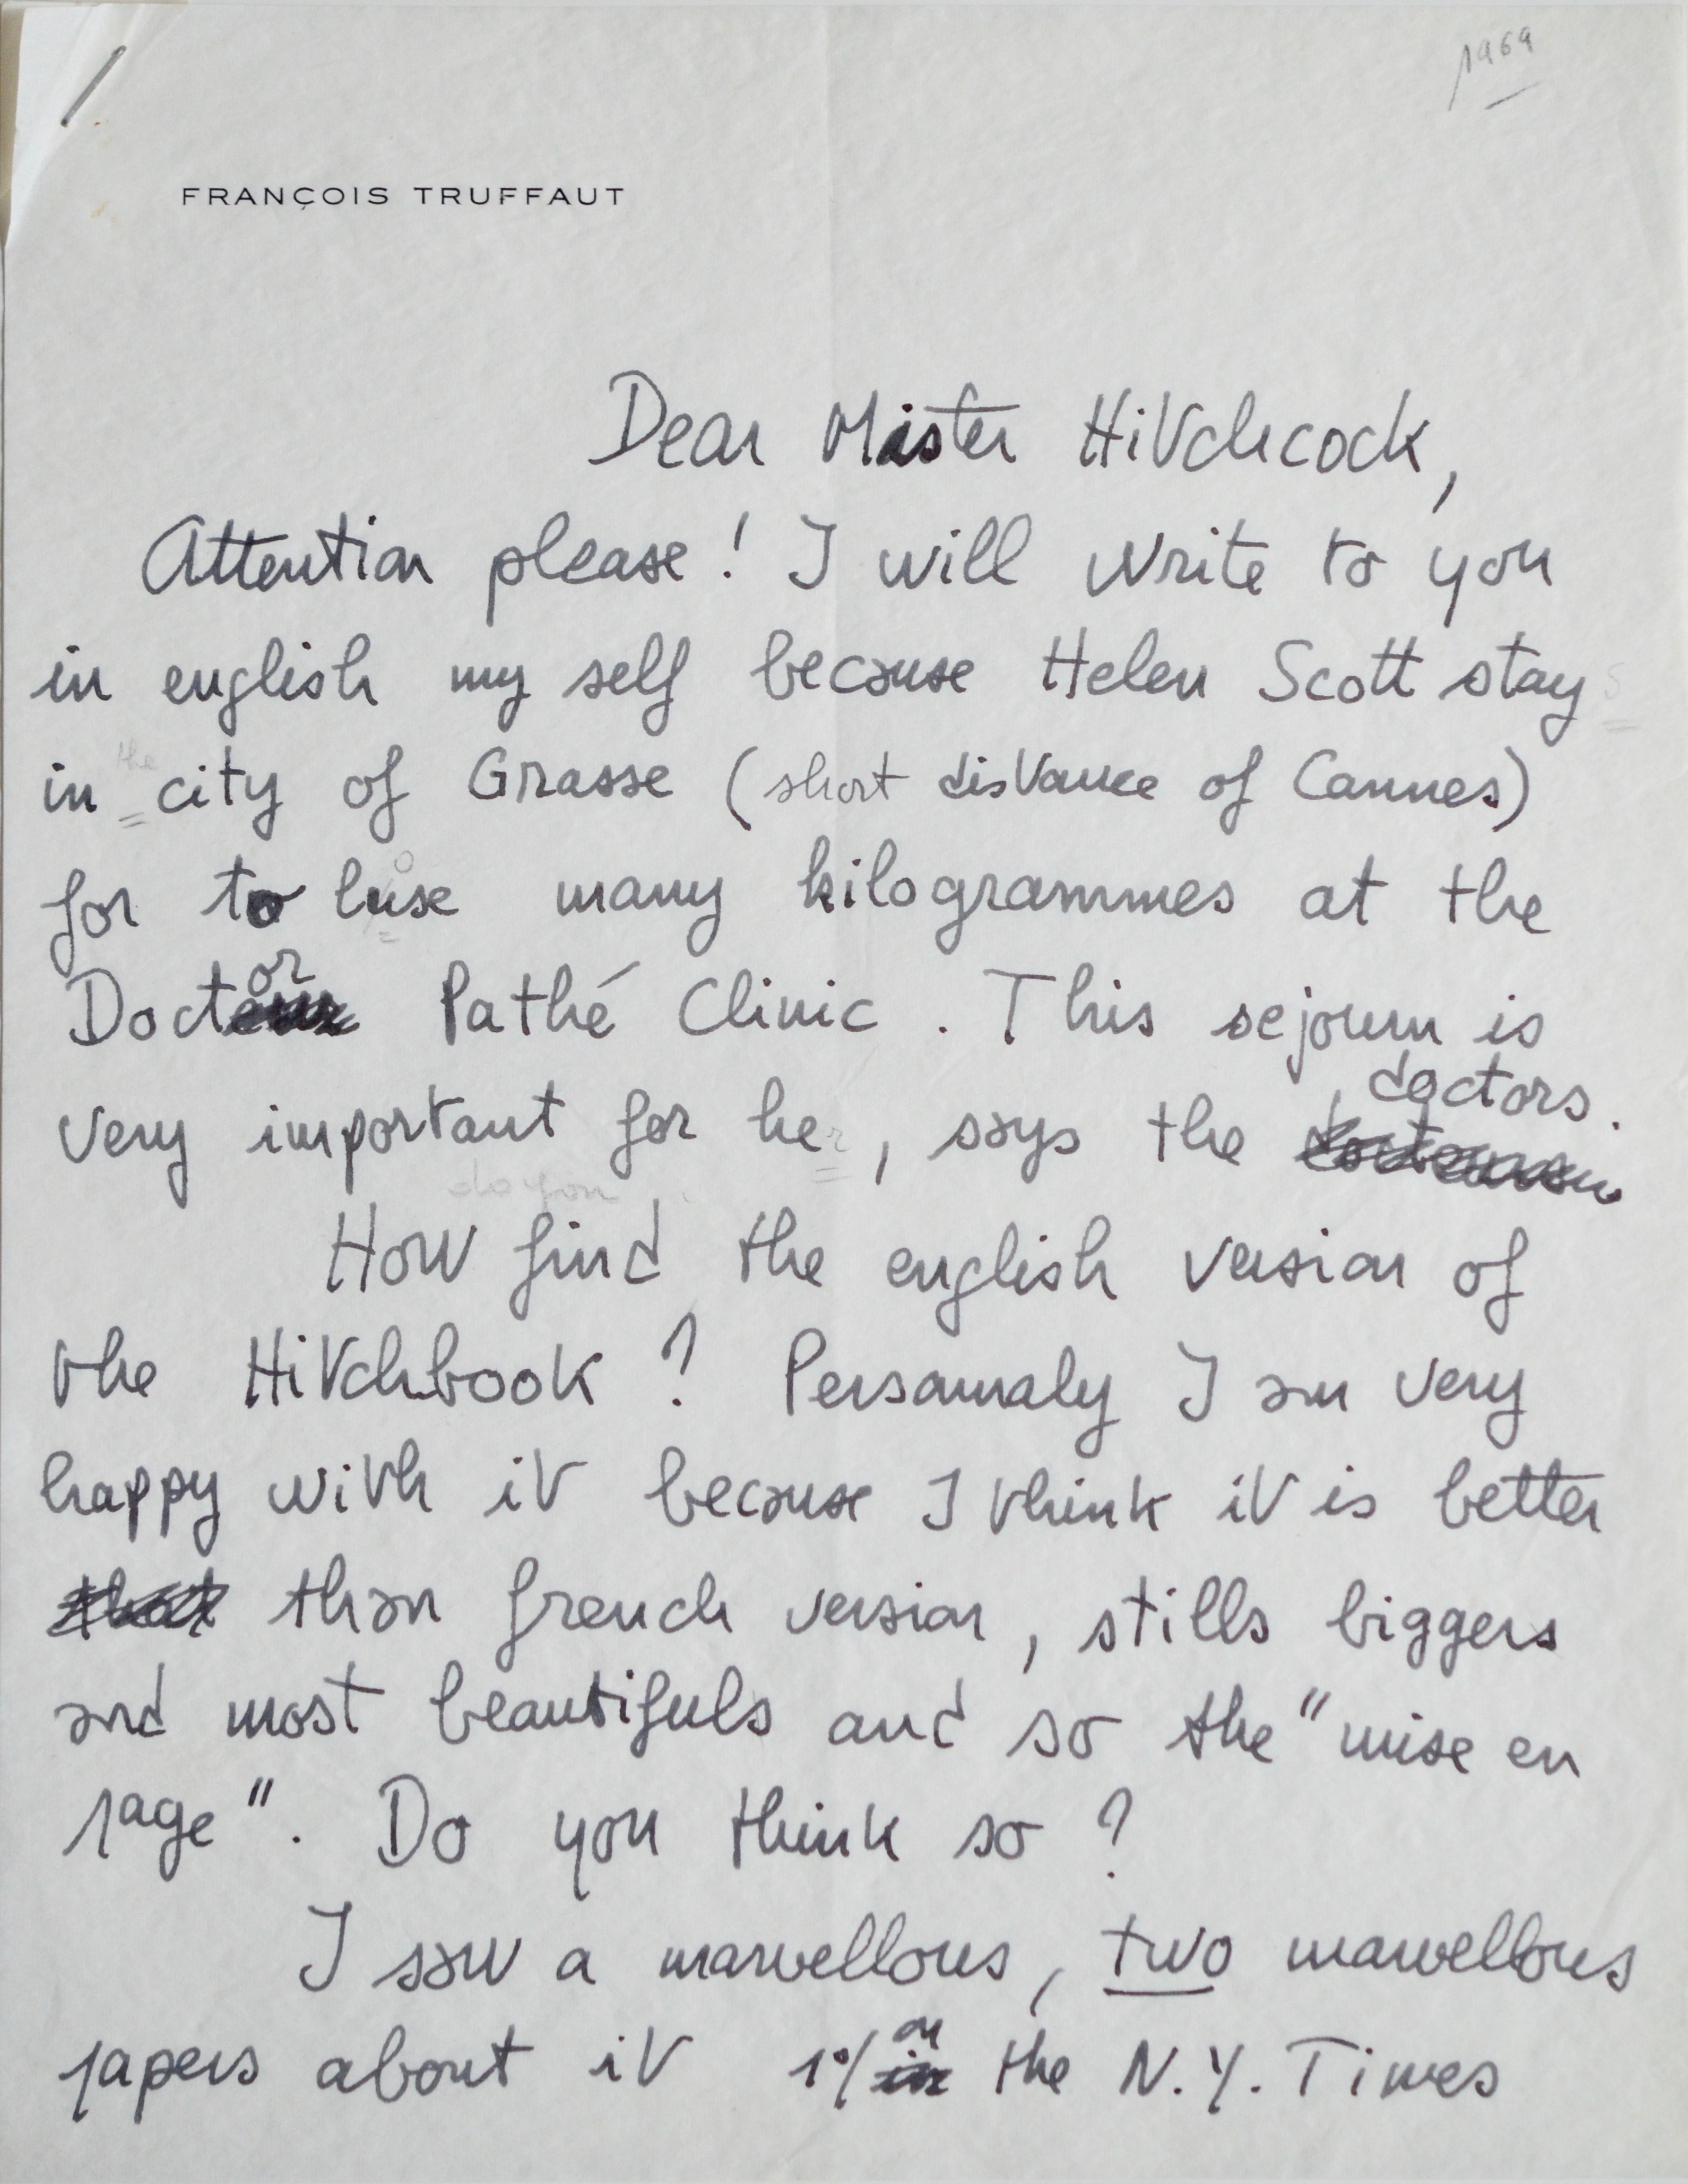 1969
FRANÇOIS TRUFFAUT
Dear Mister Hitchcock,
Attention please! I will write to you
in english my self because Helen Scott stays
in the city of Grasse (short distance of Cannes)
for to luse many kilogrammes at the
o
or
Docteur Pathé Clinic. This sejourn is
doctors.
very important for her, says the
do you
How find the english version of
the Hitchbook? Personnaly I am very
happy with it because I think it is better
that than french version, stills biggers
and most beautifuls and so the "mise en
page". Do you think so?
I saw a marvellous, two marvellous
on
papers about it 1°/ in the N.Y. Times